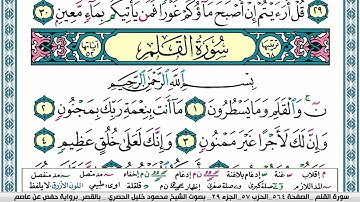 ٢٩ قُلْ أَرَءَيْتُمْ إِنْ أَصْبَحَ مَآؤُكُمْ غَوْرًا فَمَن يَأْتِيكُم بِمَآءٍ مَّعِينٍ ٣٠
سُورَةُ الْقَلَمِ
بِسْمِ اللَّهِ الرَّحْمَٰنِ الرَّحِيمِ
نٓ ۚ وَالْقَلَمِ وَمَا يَسْطُرُونَ ١ مَا أَنتَ بِنِعْمَةِ رَبِّكَ بِمَجْنُونٍ ٢
وَإِنَّ لَكَ لَأَجْرًا غَيْرَ مَمْنُونٍ ٣ وَإِنَّكَ لَعَلَىٰ خُلُقٍ عَظِيمٍ ٤
سورة القلم الصفحة ٥٦٤ الحزب ٥٧ الجزء ٢٩ بصوت الشيخ محمود خليل الحصري بالقصر برواية حفص عن عاصم